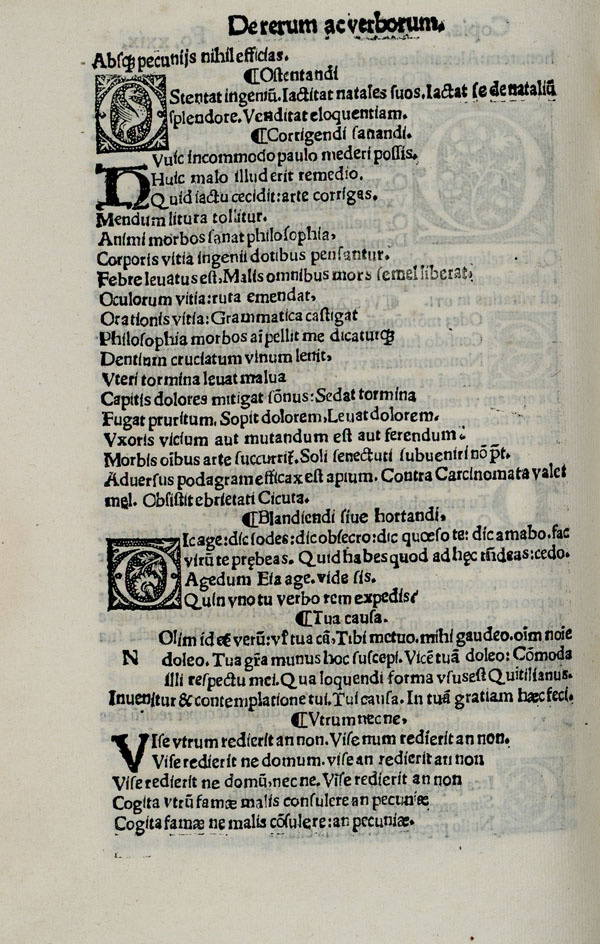 De rerum ac verborum.
Absq̃ pecunijs nihil efficias.
¶Ostentandi
OStentat ingeniũ. Iactitat natales suos. Iactat se de nataliũ
splendore. Venditat eloquentiam.
¶Corrigendi sanandi.
HVuic incommodo paulo mederi possis.
Huic malo illud erit remedio.
Quid iactu cecidit: arte corrigas.
Mendum litura tollitur.
Animi morbos sanat philosophia,
Corporis vitia ingenii dotibus pensantur.
Febre leuatus est, Malis omnibus mors semel liberat,
Oculorum vitia: ruta emendat,
Orationis vitia: Grammatica castigat
Philosophia morbos aĩ pellit me dicaturq̃
Dentium cruciatum vinum lenit,
Vteri tormina leuat malua
Capitis dolores mitigat sõnus: Sedat tormina
Fugat pruritum. Sopit dolorem, Leuat dolorem.
Vxoris vicium aut mutandum est aut ferendum.
Morbis oĩbus arte succurrit̃. Soli senectuti subueniri nõ p̃t.
Aduersus podagram efficax est apium. Contra Carcinomata valet
mel. Obsistit ebrietati Cicuta.
¶Blandiendi siue hortandi,
DIc age: dic sodes: dic obsecro: dic quæso te: dic amabo. fac
virũ te prębeas. Quid habes quod ad hęc rñdeas: cedo.
Agedum Eia age. vide sis.
Quin vno tu verbo rem expedis?
¶Tua causa.
Olim id & verũ: vt̃ tua cã, Tibi metuo. mihi gaudeo. oĩm noĩe
N doleo. Tua gr̃a munus hoc suscepi. Vicẽ tuã doleo: Cõmoda
illi respectu mei. Qua loquendi forma vsus est Quitilianus.
Inuenitur & contemplatione tui. Tui causa. In tuã gratiam hæc feci.
¶Vtrum nec ne,
VIse vtrum redierit an non. Vise num redierit an non.
Vise redierit ne domum. vise an redierit an non
Vise redierit ne domũ, nec ne. Vise redierit an non
Cogita vtrũ famæ malis consulere an pecuniæ
Cogita famæ ne malis cõsulere: an pecuniæ.